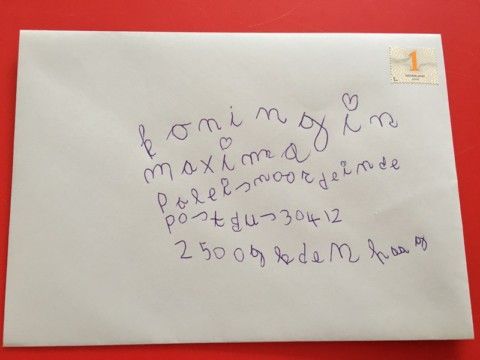 1
koningin
maxima
paleisnoordeinde
postbus30412
2500gkdeNhaag